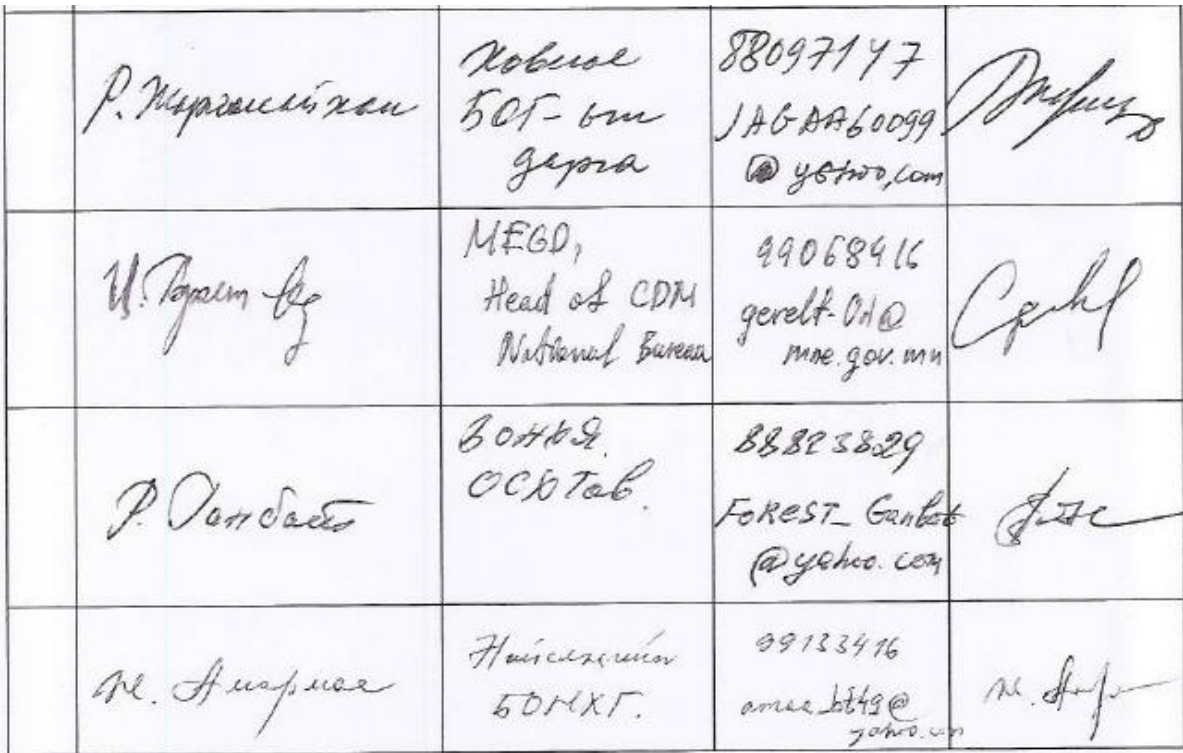 Р. Жаргалсайхан
Ховсгол
БОГ-ын
дарга
88097147
JAGAA60099
@ yahoo,com
MEGD,
Head of CDM
National Bureau
99068916
gerelt-Od@
mne.gov.mn
Р. Ганбат
88823829
FOREST_Ganbat
@yahoo.com
Ж. Амармаа
Нийслэлийн
БОНХГ.
99133416
amaa_bt49@
yahoo.com